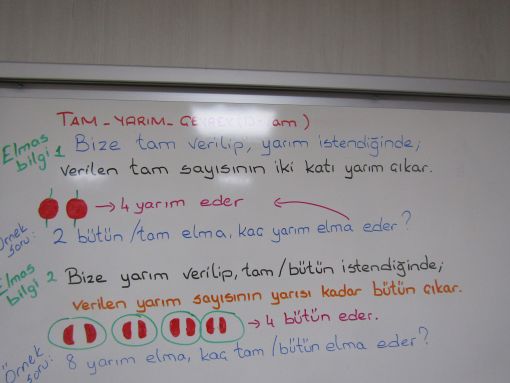 TAM-YARIM-ÇEYREK(D-am)
Elmas bilgi 1 Bize tam verilip, yarım istendiğinde;
verilen tam sayısının iki katı yarım çıkar.
→ 4 yarım eder
Örnek soru: 2 bütün/tam elma, kaç yarım elma eder?
Elmas bilgi 2 Bize yarım verilip, tam/bütün istendiğinde;
verilen yarım sayısının yarısı kadar bütün çıkar.
→ 4 bütün eder.
Örnek soru: 8 yarım elma, kaç tam/bütün elma eder?